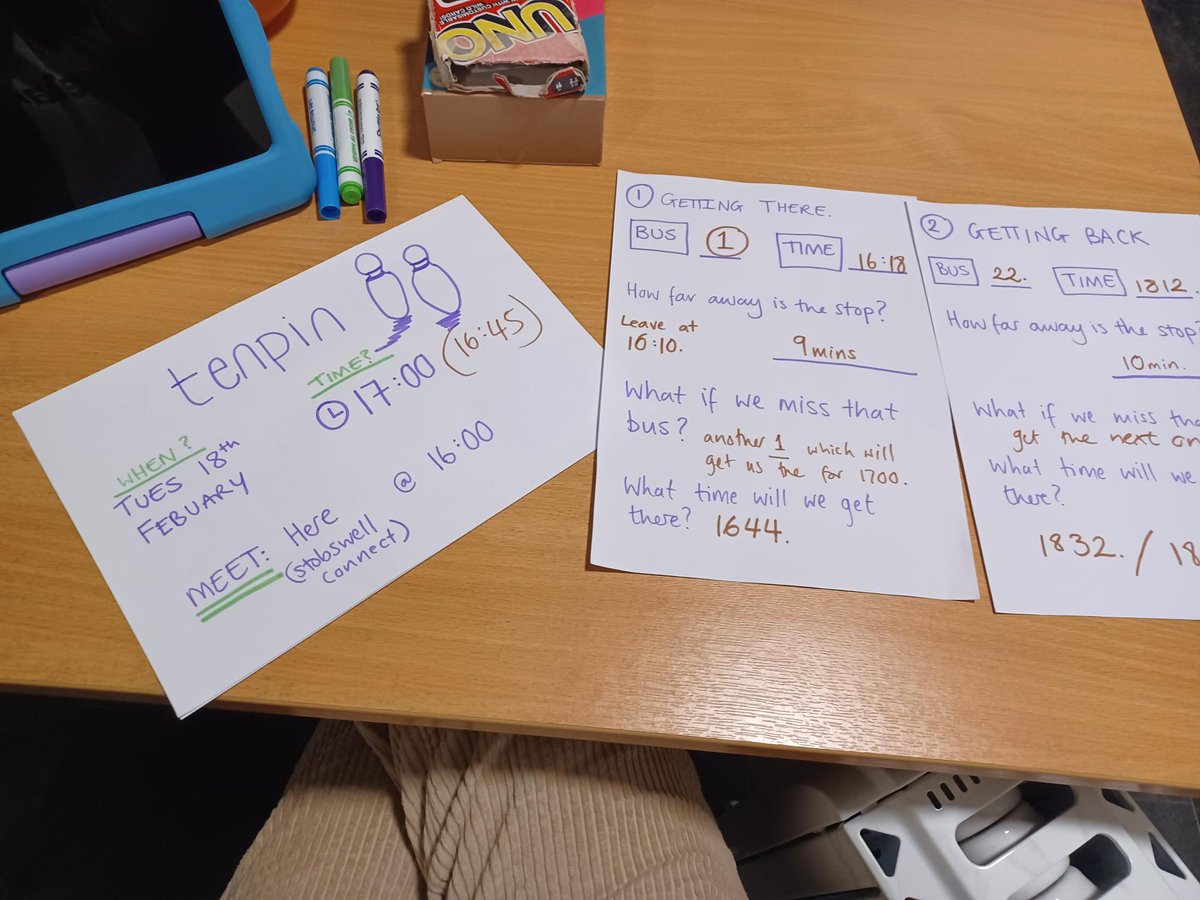 UNO
WITH CUSTOMISABLE
WILD CARDS!
tenpin
TIME?
17:00 (16:45)
WHEN?
TUES 18th
FEBUARY
MEET: Here @ 16:00
(stobswell
connect)
1 GETTING THERE.
BUS 1 TIME 16:18
How far away is the stop?
Leave at
16:10.
9 mins
What if we miss that
bus? another 1 which will
get us the for 1700.
What time will we get
there? 1644.
2 GETTING BACK
BUS 22. TIME 1812.
How far away is the stop
10min.
What if we miss tha
get the next on
What time will we
there?
1832. / 18